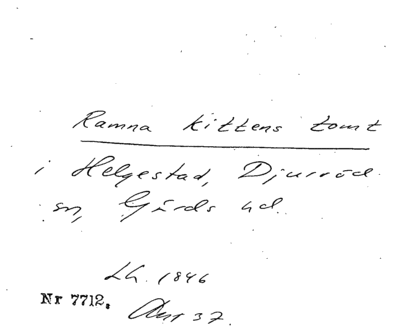 Ramna kittens tomt
i Helgestad, Djurröd
sn, Gärds hd.
Lh. 1846
Nr 7712. Avr 37.